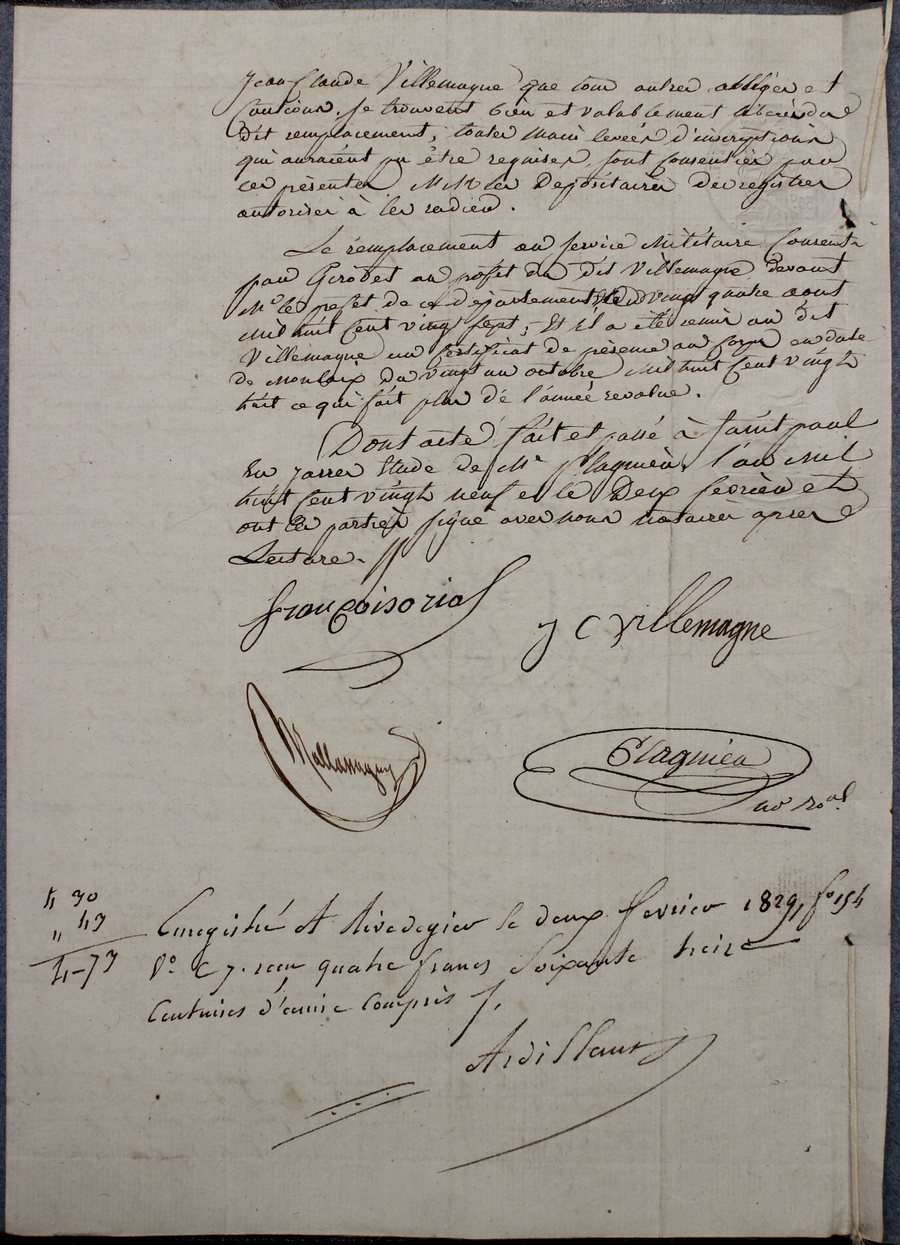 Jean Claude Villemagne que tous autres obligés et
Cautions, se trouvent bien et valablement libérés du
dit remplacement, toutes main levées d'inscriptions
qui auraient pu être requises, sont consenties par
ces présentes MM les Depositaires des registres
autorisés à les radier.
Le remplacement au service Militaire Consenti
par Girodet au profit du dit Villemagne devant
Mr le prefet de ce département est du vingt quatre aout
Mil huit Cent vingt sept, Et il a été remis au dit
Villemagne un Certificat de présence au Corps en date
de du vingt un octobre Mil huit Cent vingt
huit ce qui fait plus de l'année revolue.
Dont acte fait et passé à saint paul
En Jarrez Etude de Me plagnieu, l'an Mil
huit Cent vingt neuf et le Deux fevrier et
ont les parties signé avec nous notaires apres
Lecture.
françois orial
J C Villemagne
Mallassagny
Plagnieu
no royal
4 30
" 43
4-73
Enregistré A Rivedegier le deux fevrier 1829, fo 154
Vo C 7. reçu quatre francs Soixante treize
Centimes d'eximé Compris
Ardillant